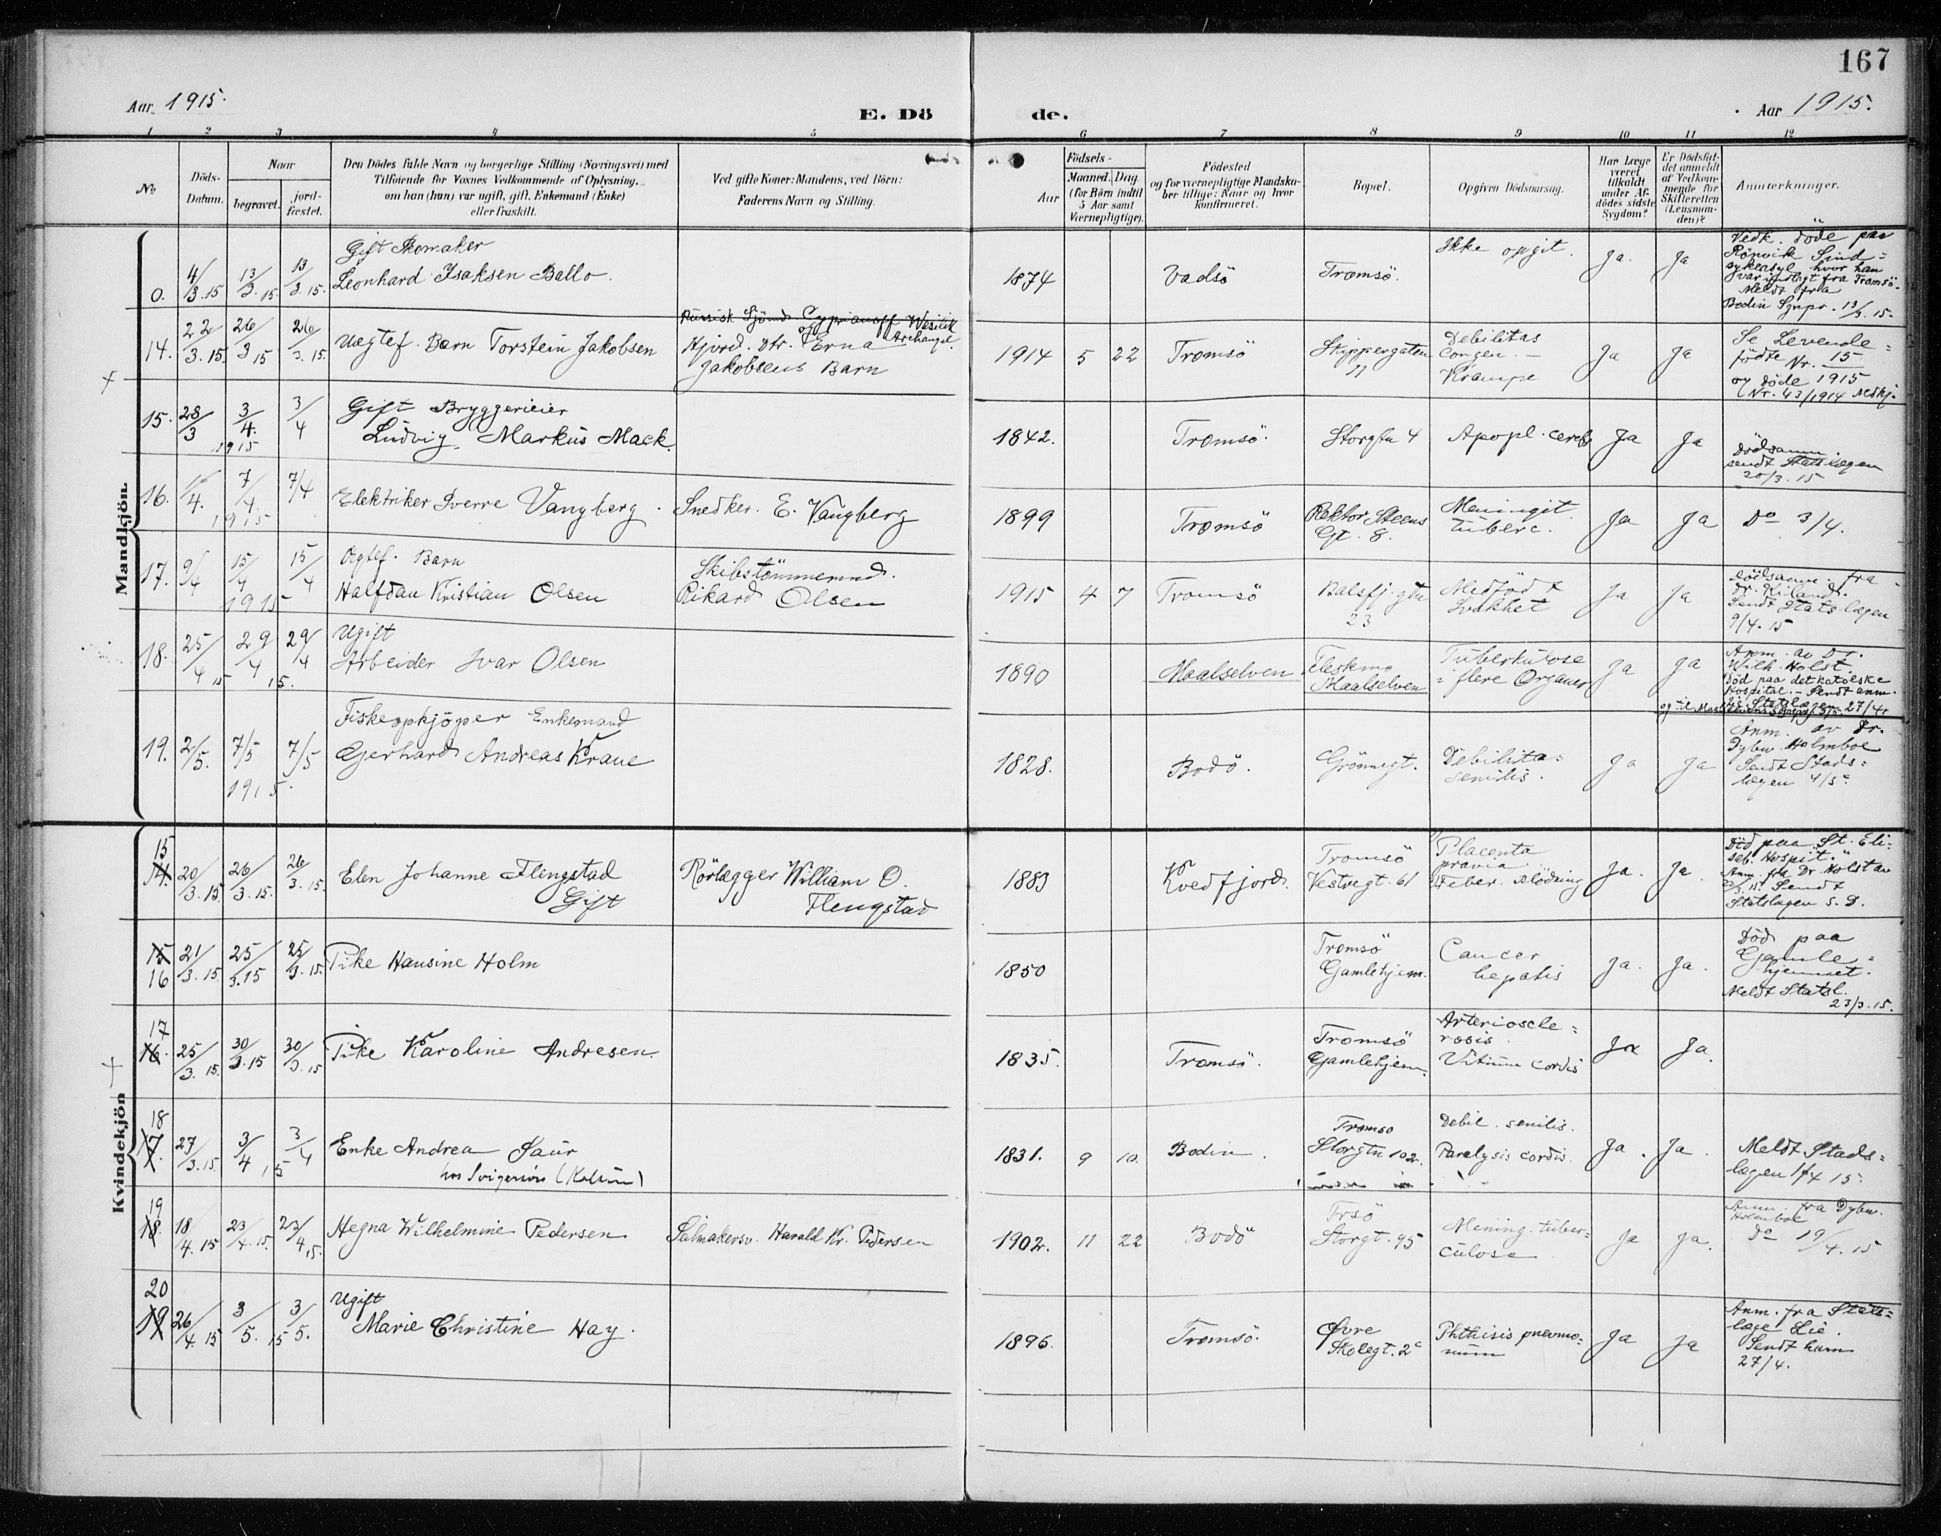 167
Aar 1915.
E. Döde.
Aar 1915.
1 2 3 4 5 6 7 8 9 10 11 12
No
Döds-Datum.
Naar
begravet.
jord-fæstet.
Den Dödes fulde Navn og borgerlige Stilling (Næringsvei) med
Tilföiende for Voxnes Vedkommende af Oplysning,
om han (hun) var ugift, gift, Enkemand (Enke)
eller fraskilt.
Ved gifte Koner: Mandens, ved Börn:
Faderens Navn og Stilling.
Födsels-
Aar
Maaned. Dag
(for Börn indtil
5 Aar samt
Værnepligtige).
Födested
og for værnepligtige Mandska-
ber tillige: Naar og hvor
konfirmeret.
Bopæl.
Opgiven Dödsaarsag.
Har Læge
været
tilkaldt
under Af-
dödes sidste
Sygdom?
Er Dödsfal-
det anmeldt
af Vedkom-
mende for
Skifteretten
(Lensman-
den)?
Anmærkninger.
Mandkjön.
0. 4/3.15 13/3.15. 13/3.15.
Gift Skomaker
Leonhard Isaksen Ballo.
1874 Vadsö Tromsö. Ikke opgit. Ja. Ja
Vedk. döde paa
Rönvik Sind=
sykeasyl, hvor han
var indlagt fra Tromsö.
Meldt fra
Bodin Sgnpr. 13/3.15.
14. 22/3.15. 26/3 15 26/3.15.
Uægtef. Barn Torstein Jakobsen
Russisk Sjömd. Cyprianoff Wesilik
og Archangel.
Hjord. Dtr. Erna
Jakobsens Barn
1914 5 22 Tromsö Skippergaten
11
Debilitas
congen. —
Krampe
Ja Ja
Se Levende=
födte Nr. 15
og döde 1915
(Nr. 43/1914 Medkj.
15. 28/3 3/4. 1915 3/4
Gift Bryggerieier
Ludvig Markus Mack.
1842. Tromsö. Storgtn 4 Apopl. cereb. Ja Ja
Dödsanm.
sendt Statslægen
28/3.15
16. 7/4 1915 7/4
Elektriker Sverre Vangberg.
Snedker. E. Vangberg
1899 Tromsö Rektor Steens
Gt. 8.
Meningit.
tuberc.
Ja Ja Do 3/4.
17. 9/4 15/4 1915 15/4
Ægtef. Barn
Halfdan Kristian Olsen
Skibstömmermd.
Rikard Olsen
1915 4 7 Tromsö Balsfj. gtn
23
Medfödt
Svakhet
Ja Ja
Dödsanm. fra
Dr. Kiland.
Sendt Statslægen
9/4.15
18. 25/4 15 29/4 15. 29/4
Ugift
Arbeider Ivar Olsen
1890 Maalselven Fleskmo
Maalselven
Tuberkulose
i flere Organer
Ja Ja
Anm. av Dr.
Wilh. Holst.
Död paa det katolske
Hospital. — Sendt anm.
til Statslægen 27/4.
19. 2/5. 7/5 1915. 7/5
Fiskeopkjöper Enkemand
Gerhard Andreas Krane
1828. Bodö. Grönnegt. Debilitas
senilis.
Ja Ja
Anm. av Dr.
Dybw. Holmboe
Sendt Stads=
lægen 4/5.
Kvindekjön
15
14. 20/3.15. 26/3.15. 26/3.15.
Elen Johanne Flengstad
Gift
Rörlægger William O.
Flengstad
1883 Kvedfjord. Tromsö
Vestregt. 61
Placenta
prævia
Feber. Blödning
Ja. Ja.
Död paa St. Eli=
seb. Hospit.
Anm. fra Dr Holst av
22/3.15. Sendt
Statslægen s. D.
15
16 21/3.15. 25/3.15 25/3.15.
Pike Hansine Holm
1850 Tromsö
Gamlehjem.
Cancer
hepatis
Ja. Ja.
Död paa
Gamle=
hjemmet.
Meldt Statsl.
23/3.15.
17
16. 25/3.15. 30/3.15 30/3.15
Pike Karoline Andresen
1835. Tromsö. Tromsö
Gamlehjem.
Arterioscle=
rosis.
Vitium cordis
Ja Ja.
18
17. 27/3.15. 3/4 15 3/4
Enke Andrea Saur
hos Svigersön
1831. 9 10. Bodin. Tromsö
Storgtn 102.
Debil. senilis.
Paralysis cordis.
Ja. Ja.
Meldt Stads=
lægen 1/4 15
19
18. 18/4.15 23/4.15. 23/4 15.
Hegna Wilhelmine Pedersen
Salmakersv. Harald Kr. Pedersen
1902. 11 22 Bodö Trsö
Storgt. 95
Mening. tuber=
culosa
Ja Ja.
Anm. fra Dybw.
Holmboe
do 19/4.15
20
19 26/4.15 3/5. 15 3/5.
Ugift
Marie Christine Hay.
1896. Tromsö. Øvre
Skolegt. 2c
Phthisis pneumo=
num
Ja Ja
Anm. fra Stats=
læge Lie.
Sendt ham
27/4.